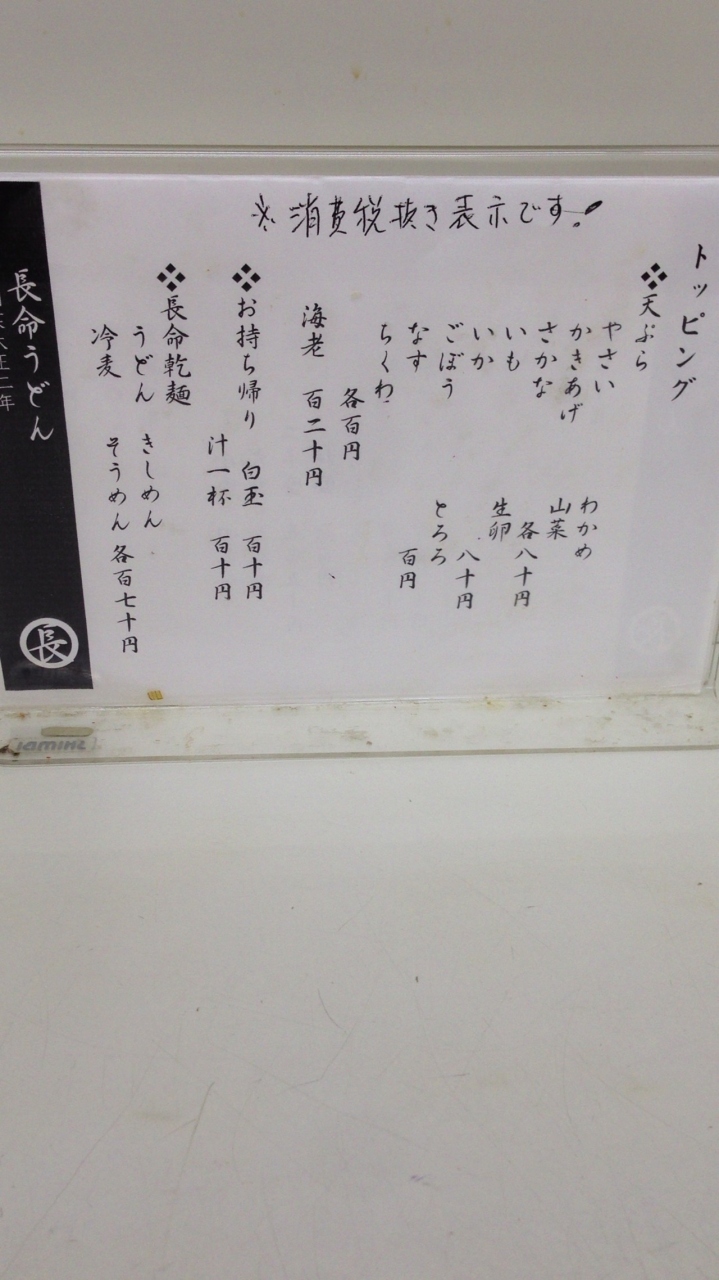 ※消費税抜き表示です。
トッピング
❖天ぷら
やさい
かきあげ
さかな
いも
いか
ごぼう
なす
ちくわ
各百円
海老 百二十円
わかめ
山菜
各八十円
生卵
八十円
とろろ
百円
❖お持ち帰り 白玉 百十円
汁一杯 百十円
❖長命乾麺
うどん きしめん
冷麦 そうめん 各百七十円
長命うどん
大正二年
長